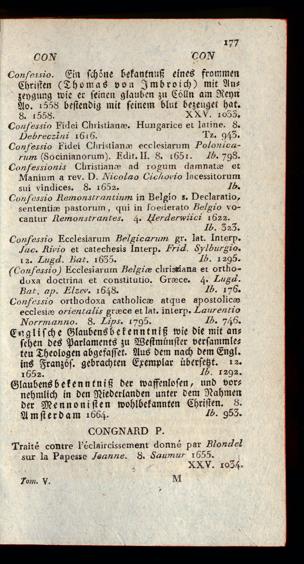 177
CON CON
Confessio. Ein schöne bekantnuß eines frommen
Christen (Thomas von Imbroich) mit Aus
zeygung wie er seinen glauben zu Cölln am Reyn
Ao. 1558 bestendig mit seinem blut bezeuget hat.
8. 1558. XXV. 1055.
Confessio Fidei Christianæ. Hungarice et latine. 8.
Debreczini 1616. Tz. 943.
Confessio Fidei Christianæ ecclesiarum Polonica-
rum (Socinianorum). Edit. II. 8. 1651. Ib. 798.
Confessionis Christianæ ad rogum damnatæ et
Manium a rev. D. Nicolao Cichovio lacessitorum
sui vindices. 8. 1652. Ib.
Confessio Remonstrantium in Belgio s. Declaratio,
sententiæ pastorum, qui in foederato Belgio vo-
cantur Remonstrantes. 4. Herderwiici 1622.
Ib. 323.
Confessio Ecclesiarum Belgicarum gr. lat. Interp.
Jac. Rivio et catechesis Interp. Frid. Sylburgio.
12. Lugd. Bat. 1635. Ib. 1295.
(Confessio) Ecclesiarum Belgiæ christiana et ortho-
doxa doctrina et constitutio. Græce. 4. Lugd.
Bat. ap. Elzev. 1648. Ib. 176.
Confessio orthodoxa catholicæ atque apostolicæ
ecclesiæ orientalis græce et lat. interp. Laurentio
Norrmanno. 8. Lips. 1795. Ib. 746.
Englische Glaubensbekenntniß wie die mit an-
sehen des Parlaments zu Westmünster versammle-
ten Theologen abgefasset. Aus dem nach dem Engl.
ins Französ. gebrachten Exemplar übersetzt. 12.
1652. Ib. 1292.
Glaubensbekenntniß der waffenlosen, und vor-
nehmlich in den Niederlanden unter dem Nahmen
der Mennonisten wohlbekannten Christen. 8.
Amsterdam 1664. Ib. 953.
CONGNARD P.
Traité contre l'éclaircissement donné par Blondel
sur la Papesse Jeanne. 8. Saumur 1655.
XXV. 1034.
Tom. V. M